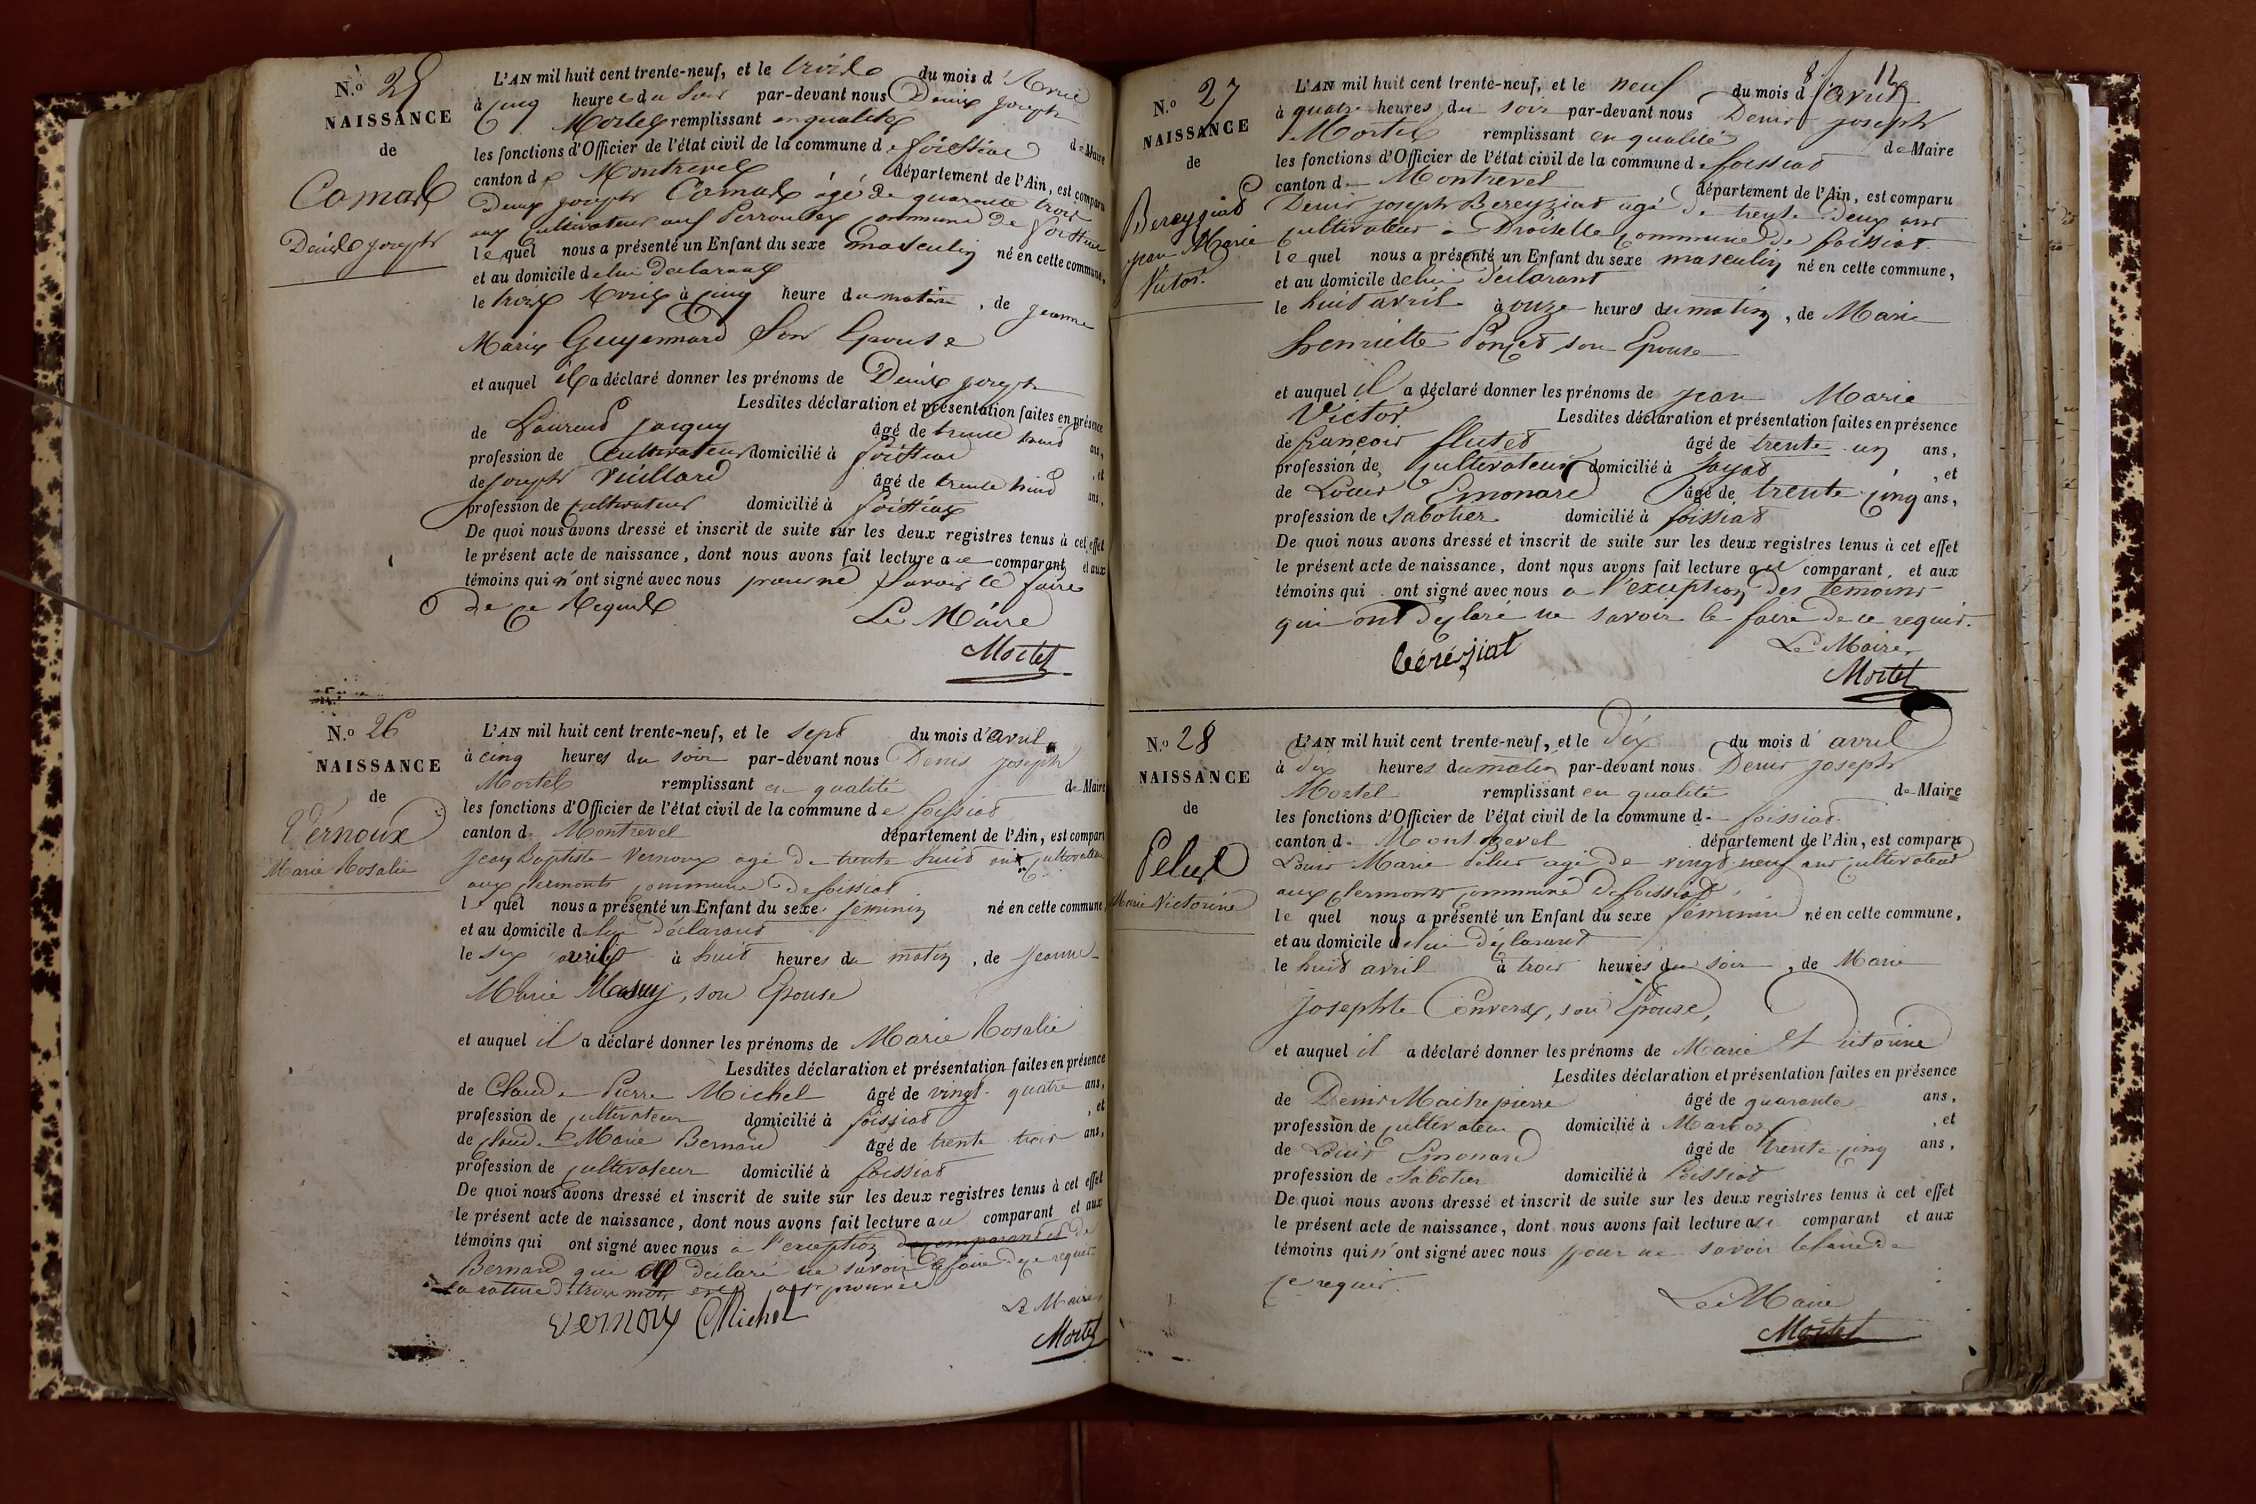 N.o 25
NAISSANCE
de
Comas
Denis joseph
L'AN mil huit cent trente-neuf, et le trois du mois d'Avril
à cinq heures du soir par-devant nous Denis joseph
Mortel remplissant en qualité de Maire
les fonctions d'Officier de l'état civil de la commune de foissiat
canton de Montrevel département de l'Ain, est comparu
Denis joseph Comas âgé de quarante trois
ans cultivateur aux Perrouses commune de foissiat
lequel nous a présenté un Enfant du sexe masculin né en cette commune,
et au domicile de lui déclarant
le trois Avril à cinq heure du matin, de jeanne
Marie Guyennard Son Epouse
et auquel il a déclaré donner les prénoms de Denis joseph
Lesdites déclaration et présentation faites en présence
de Laurend jacquy âgé de trente huit ans,
profession de Cultivateur domicilié à foissiat, et
de joseph Vuillard âgé de trente huit ans,
profession de cultivateur domicilié à foissiat
De quoi nous avons dressé et inscrit de suite sur les deux registres tenus à cet effet
le présent acte de naissance, dont nous avons fait lecture au comparant et aux
témoins qui n'ont signé avec nous pour ne savoir le faire
de ce Requis
Le Maire
Mortel
N.o 26
NAISSANCE
de
Vernoux
Marie Rosalie
L'AN mil huit cent trente-neuf, et le sept du mois d'avril
à cinq heures du soir par-devant nous Denis joseph
Mortel remplissant en qualité de Maire
les fonctions d'Officier de l'état civil de la commune de foissiat
canton de Montrevel département de l'Ain, est comparu
Jean Baptiste Vernoux agé de trente huit ans cultivateur
aux clermonts commune de foissiat
lequel nous a présenté un Enfant du sexe féminin né en cette commune
et au domicile de lui déclarant
le six avril à huit heures du matin, de jeanne
Marie Masuy, son Epouse
et auquel il a déclaré donner les prénoms de Marie Rosalie
Lesdites déclaration et présentation faites en présence
de Claude Pierre Michel âgé de vingt quatre ans,
profession de cultivateur domicilié à foissiat, et
de Claude Marie Bernard âgé de trente trois ans,
profession de cultivateur domicilié à foissiat
De quoi nous avons dressé et inscrit de suite sur les deux registres tenus à cet effet
le présent acte de naissance, dont nous avons fait lecture au comparant et aux
témoins qui ont signé avec nous à l'exception de
Bernard qui a déclaré ne savoir le faire de ce requis
la rature de trois mots est approuvée
Vernoux CMichel Le Maire
Mortel
8 12
N.o 27
NAISSANCE
de
Bereyziat
jean Marie
Victor
L'AN mil huit cent trente-neuf, et le neuf du mois d'avril
à quatre heures du soir par-devant nous Denis joseph
Mortel remplissant en qualité de Maire
les fonctions d'Officier de l'état civil de la commune de foissiat
canton de Montrevel département de l'Ain, est comparu
Denis joseph Bereyziat agé de trente deux ans
cultivateur à Droiselle commune de foissiat
lequel nous a présenté un Enfant du sexe masculin né en cette commune,
et au domicile de lui déclarant
le huit avril à onze heures du matin, de Marie
henriette Ponçet son Epouse
et auquel il a déclaré donner les prénoms de jean Marie
Victor Lesdites déclaration et présentation faites en présence
de françois flutet âgé de trente un ans,
profession de cultivateur domicilié à jayat, et
de Louis Emonard âgé de trente cinq ans,
profession de Sabotier domicilié à foissiat
De quoi nous avons dressé et inscrit de suite sur les deux registres tenus à cet effet
le présent acte de naissance, dont nous avons fait lecture au comparant, et aux
témoins qui ont signé avec nous a l'exception des temoins
qui ont déclaré ne savoir le faire de ce requis.
béréziat Le Maire
Mortel
N.o 28
NAISSANCE
de
Pelus
Marie Victorine
L'AN mil huit cent trente-neuf, et le dix du mois d'avril
à dix heures du matin par-devant nous Denis joseph
Mortel remplissant en qualité de Maire
les fonctions d'Officier de l'état civil de la commune de foissiat
canton de Montrevel département de l'Ain, est comparu
Louis Marie Pelus agé de vingt neuf ans cultivateur
aux clermonts commune de foissiat
lequel nous a présenté un Enfant du sexe féminin né en cette commune,
et au domicile de lui déclarant
le huit avril à trois heures du soir, de Marie
josephte Convers, son Epouse,
et auquel il a déclaré donner les prénoms de Marie Victorine
Lesdites déclaration et présentation faites en présence
de Denis Maitrepierre âgé de quarante ans,
profession de cultivateur domicilié à Marboz, et
de Louis Emonard âgé de trente cinq ans,
profession de Sabotier domicilié à foissiat
De quoi nous avons dressé et inscrit de suite sur les deux registres tenus à cet effet
le présent acte de naissance, dont nous avons fait lecture au comparant et aux
témoins qui n'ont signé avec nous pour ne savoir le faire de
ce requis.
Le Maire
Mortel